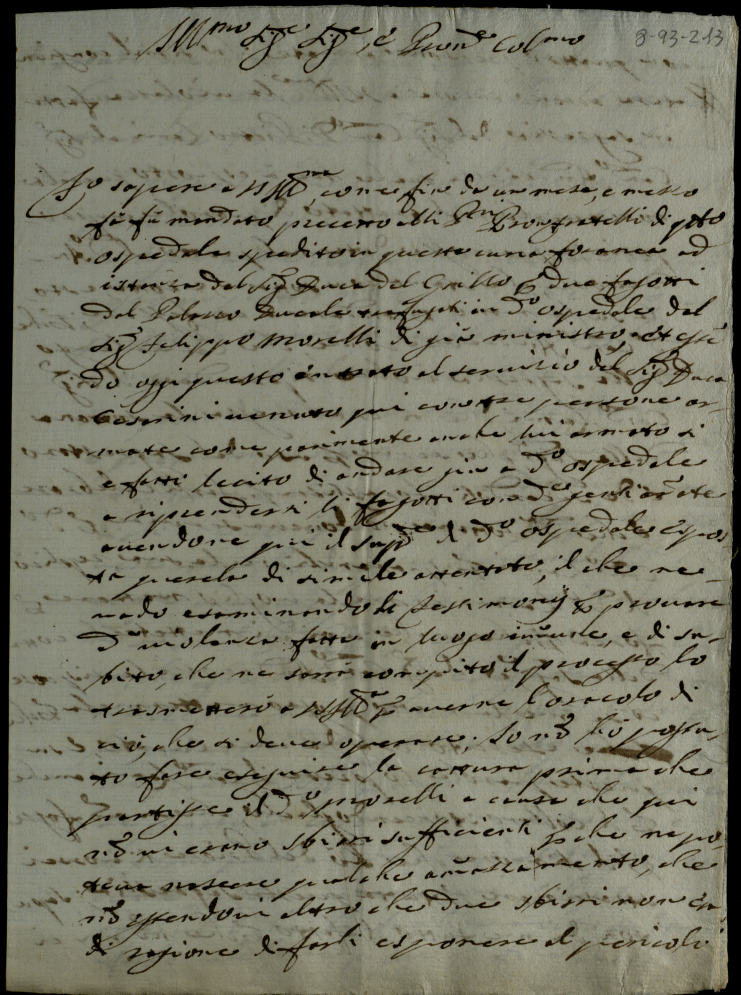 8-93-213
Ill.mo Sig.e Sig.e, e Pron.e Col.mo
Fo sapere a VS Ill.ma, come fin da un mese, e mezzo
fà fù mandato precetto alli Confratelli di q.to
ospedale spedito in questa curia foranea ad
istanza del Sig.r Duca del Grillo p due fagotti
del Palazzo Ducale in d.o ospedale del
Sig.r Filippo Morelli di già ministro, et essē
do oggi questo entrato al servizio del Sig.r Duca
Cesarini venuto qui con tre persone ar-
mate come parimente anche lui armato si
è fatti lecito di andare giù a d.o ospedale
a riprendersi li fagotti con d.e genti armate
avendone qui il sup.re di d.o ospedale espos
ta querela di simile attentato, il che ne
vado esaminando li Testimonij p provare
d.a violenza fatta in luogo immune, e di su-
bito, che ne sarà compito il processo lo
trasmetterò a VS Ill.ma p averne l'oracolo di
ciò, che si deve operare; Io nō hò possu-
to fare eseguire la cattura prima che
partisse il d.o Morelli a causa che qui
nō vi erano sbirri sufficienti p che ne po-
teva nascere qualche ammazzamento, che
nō essendovi altro che due sbirri non era
di ragione di farli esponere al pericolo